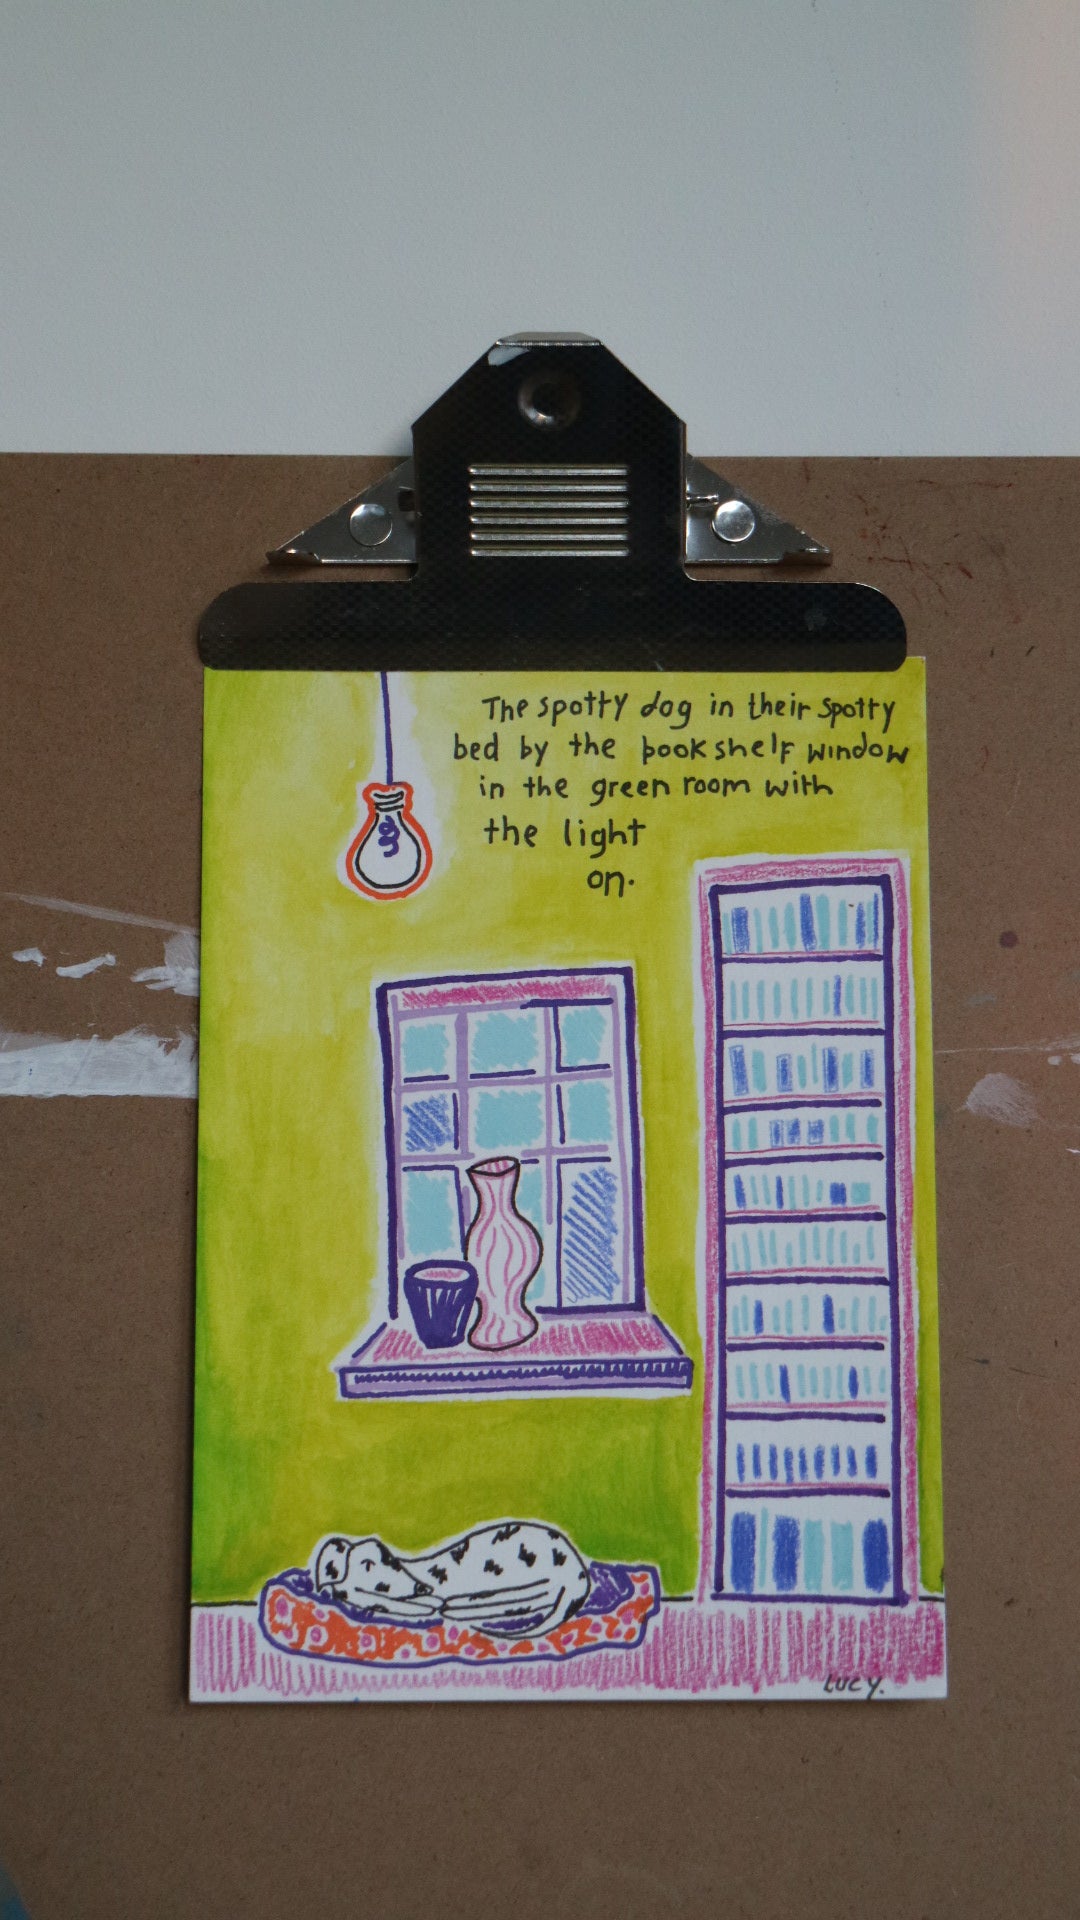 The spotty dog in their spotty
bed by the bookshelf window
in the green room with
the light
on.
LUCY.